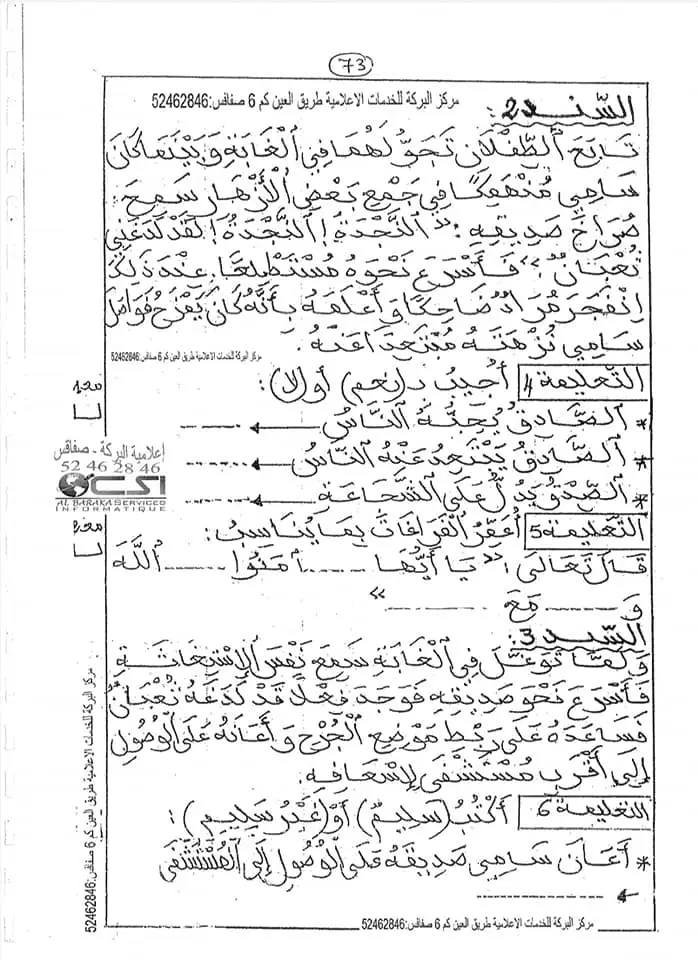 73
مركز البركة للخدمات الاعلامية طريق العين كم 6 صفاقس:52462846
السّند 2:
تَابَعَ ٱلطِّفْلَانِ تَجَوُّلَهُمَا فِي ٱلْغَابَةِ وَبَيْنَمَا كَانَ
سَامِي مُنْهَمِكًا فِي جَمْعِ بَعْضِ ٱلْأَزْهَارِ سَمِعَ
صُرَاخَ صَدِيقِهِ: «ٱلنَّجْدَةُ! ٱلنَّجْدَةُ! لَقَدْ لَدَغَنِي
ثُعْبَانٌ». فَأَسْرَعَ نَحْوَهُ مُسْتَطْلِعًا، عِنْدَ ذَلِكَ
ٱنْفَجَرَ مُرَادٌ ضَاحِكًا وَأَعْلَمَهُ بِأَنَّهُ كَانَ يَمْزَحُ فَوَاصَلَ
سَامِي نُزْهَتَهُ مُبْتَعِدًا عَنْهُ.
مركز البركة للخدمات الاعلامية طريق العين كم 6 صفاقس:52462846
التّعليمة 4 أُجِيبُ بِـ (نعم) أو (لا):
* ٱلصَّادِقُ يُحِبُّهُ ٱلنَّاسُ
* ٱلصَّادِقُ يَبْتَعِدُ عَنْهُ ٱلنَّاسُ
* ٱلصِّدْقُ يَدُلُّ عَلَى ٱلشَّجَاعَةِ
إعلامية البركة - صفاقس
52 46 28 46
CSI
AL BARAKA SERVICES
INFORMATIQUE
التّعليمة 5 أُعَمِّرُ ٱلْفَرَاغَاتِ بِمَا يُنَاسِبُ:
قَالَ تَعَالَى: «يَا أَيُّهَا ...... آمَنُوا ...... ٱللَّهَ
وَ ...... مَعَ ...... »
السّند 3:
وَلَمَّا تَوَغَّلَ فِي ٱلْغَابَةِ سَمِعَ نَفْسَ ٱلْاِسْتِغَاثَةِ
فَأَسْرَعَ نَحْوَ صَدِيقِهِ فَوَجَدَ فِعْلًا قَدْ لَدَغَهُ ثُعْبَانٌ
فَسَاعَدَهُ عَلَى رَبْطِ مَوْضِعِ ٱلْجُرْحِ وَأَعَانَهُ عَلَى ٱلْوُصُولِ
إِلَى أَقْرَبِ مُسْتَشْفَى لِإِسْعَافِهِ.
التعليمة 6 أَكْتُبُ (سَلِيمٌ) أَوْ (غَيْرُ سَلِيمٍ):
* أَعَانَ سَامِي صَدِيقَهُ عَلَى ٱلْوُصُولِ إِلَى ٱلْمُسْتَشْفَى
مركز البركة للخدمات الاعلامية طريق العين كم 6 صفاقس:52462846
مركز البركة للخدمات الاعلامية طريق العين كم 6 صفاقس:52462846